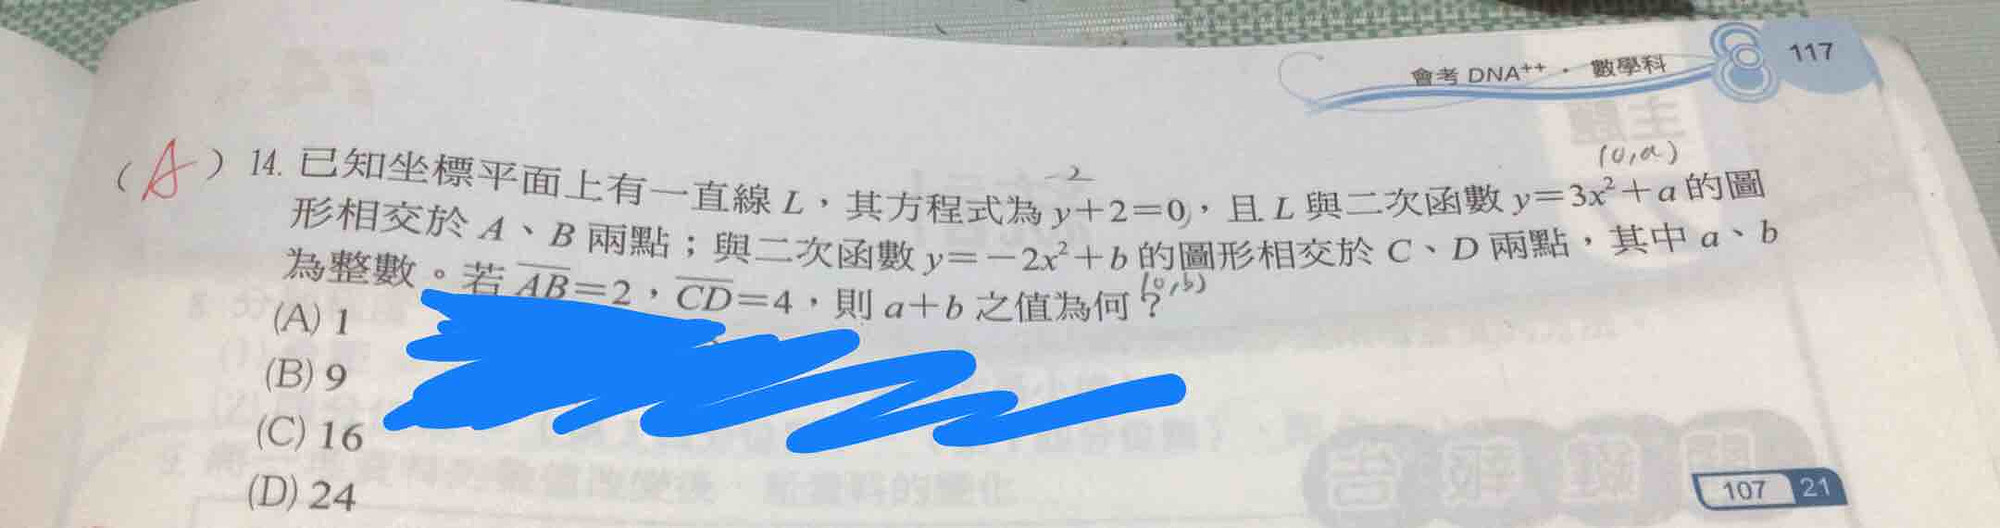 會考 DNA⁺⁺ · 數學科 117
(0,a)
-2
(A) 14. 已知坐標平面上有一直線 L，其方程式為 y+2=0，且 L 與二次函數 y=3x²+a 的圖
形相交於 A、B 兩點；與二次函數 y=-2x²+b 的圖形相交於 C、D 兩點，其中 a、b
(0,b)
為整數。若 AB=2，CD=4，則 a+b 之值為何？
(A) 1
(B) 9
(C) 16
(D) 24
107 21